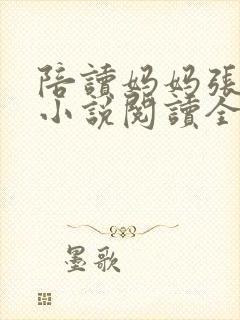 陪讀媽媽張
小說閱讀全
墨歌